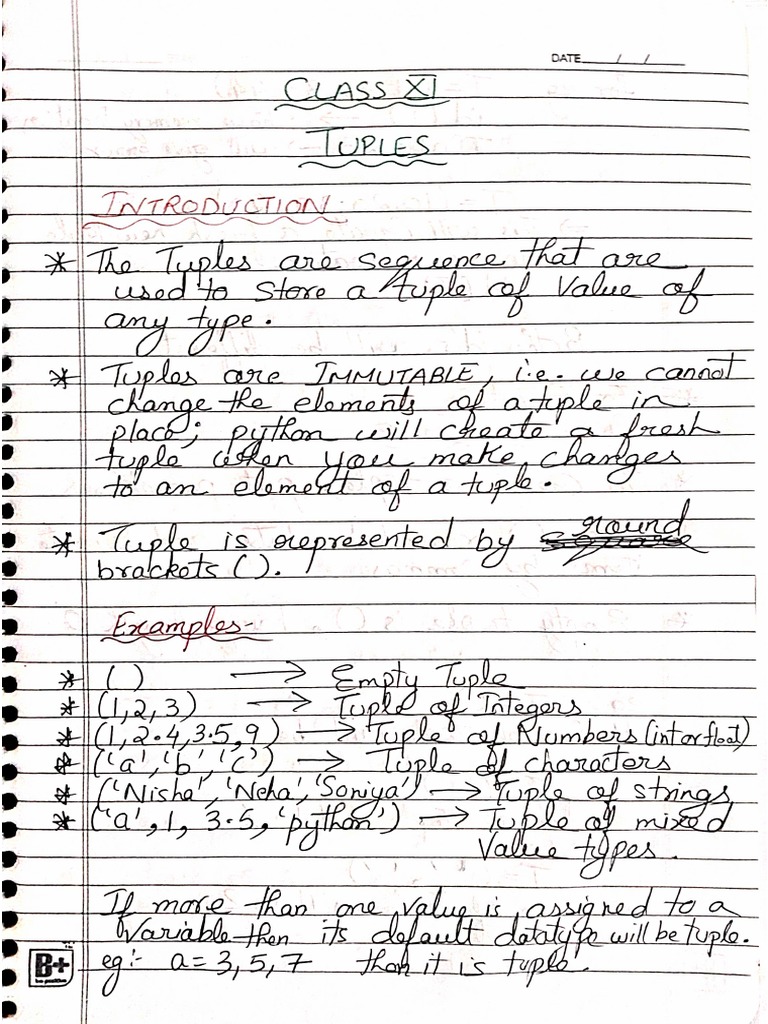 DATE___/__/___
CLASS XI
TUPLES
INTRODUCTION:
* The Tuples are sequence that are
used to store a tuple of value of
any type.
* Tuples are IMMUTABLE, i.e. we cannot
change the elements of a tuple in
place; python will create a fresh
tuple when you make changes
to an element of a tuple.
* Tuple is represented by round
brackets ().
Examples-
* ( ) → Empty Tuple
* (1,2,3) → Tuple of Integers
* (1, 2.4, 3.5, 9) → Tuple of Numbers (int or float)
* ('a','b','c') → Tuple of characters
* ('Nisha', 'Neha', 'Soniya') → Tuple of strings
* ('a', 1, 3.5, 'python') → Tuple of mixed
Value types.
If more than one value is assigned to a
Variable then its default datatype will be tuple.
eg:- a = 3, 5, 7 then it is tuple.
B+
be positive